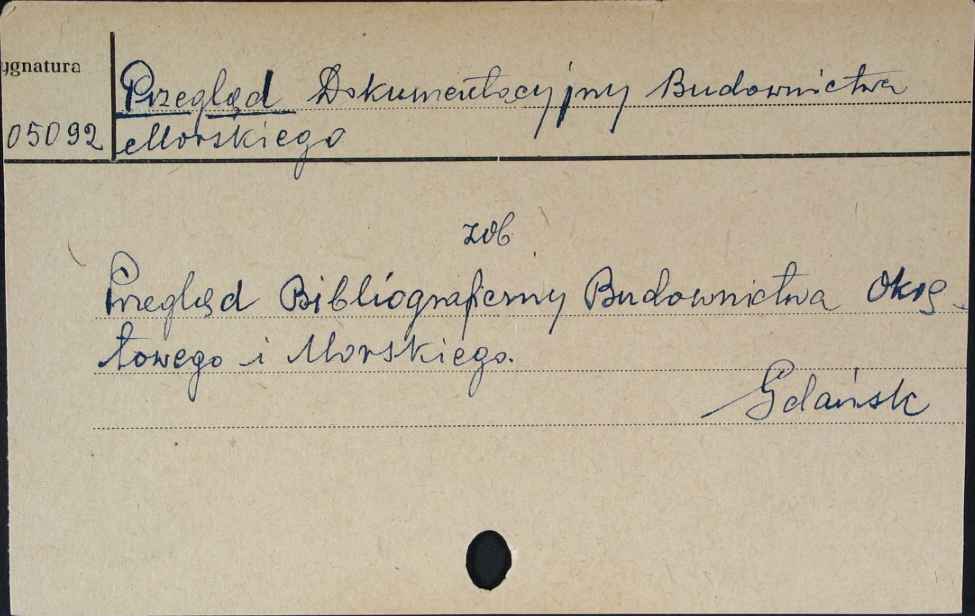 ygnatura
Przegląd Dokumentacyjny Budownictwa
05092 Morskiego
zob
Przegląd Bibliograficzny Budownictwa Okrę-
towego i Morskiego.
Gdańsk